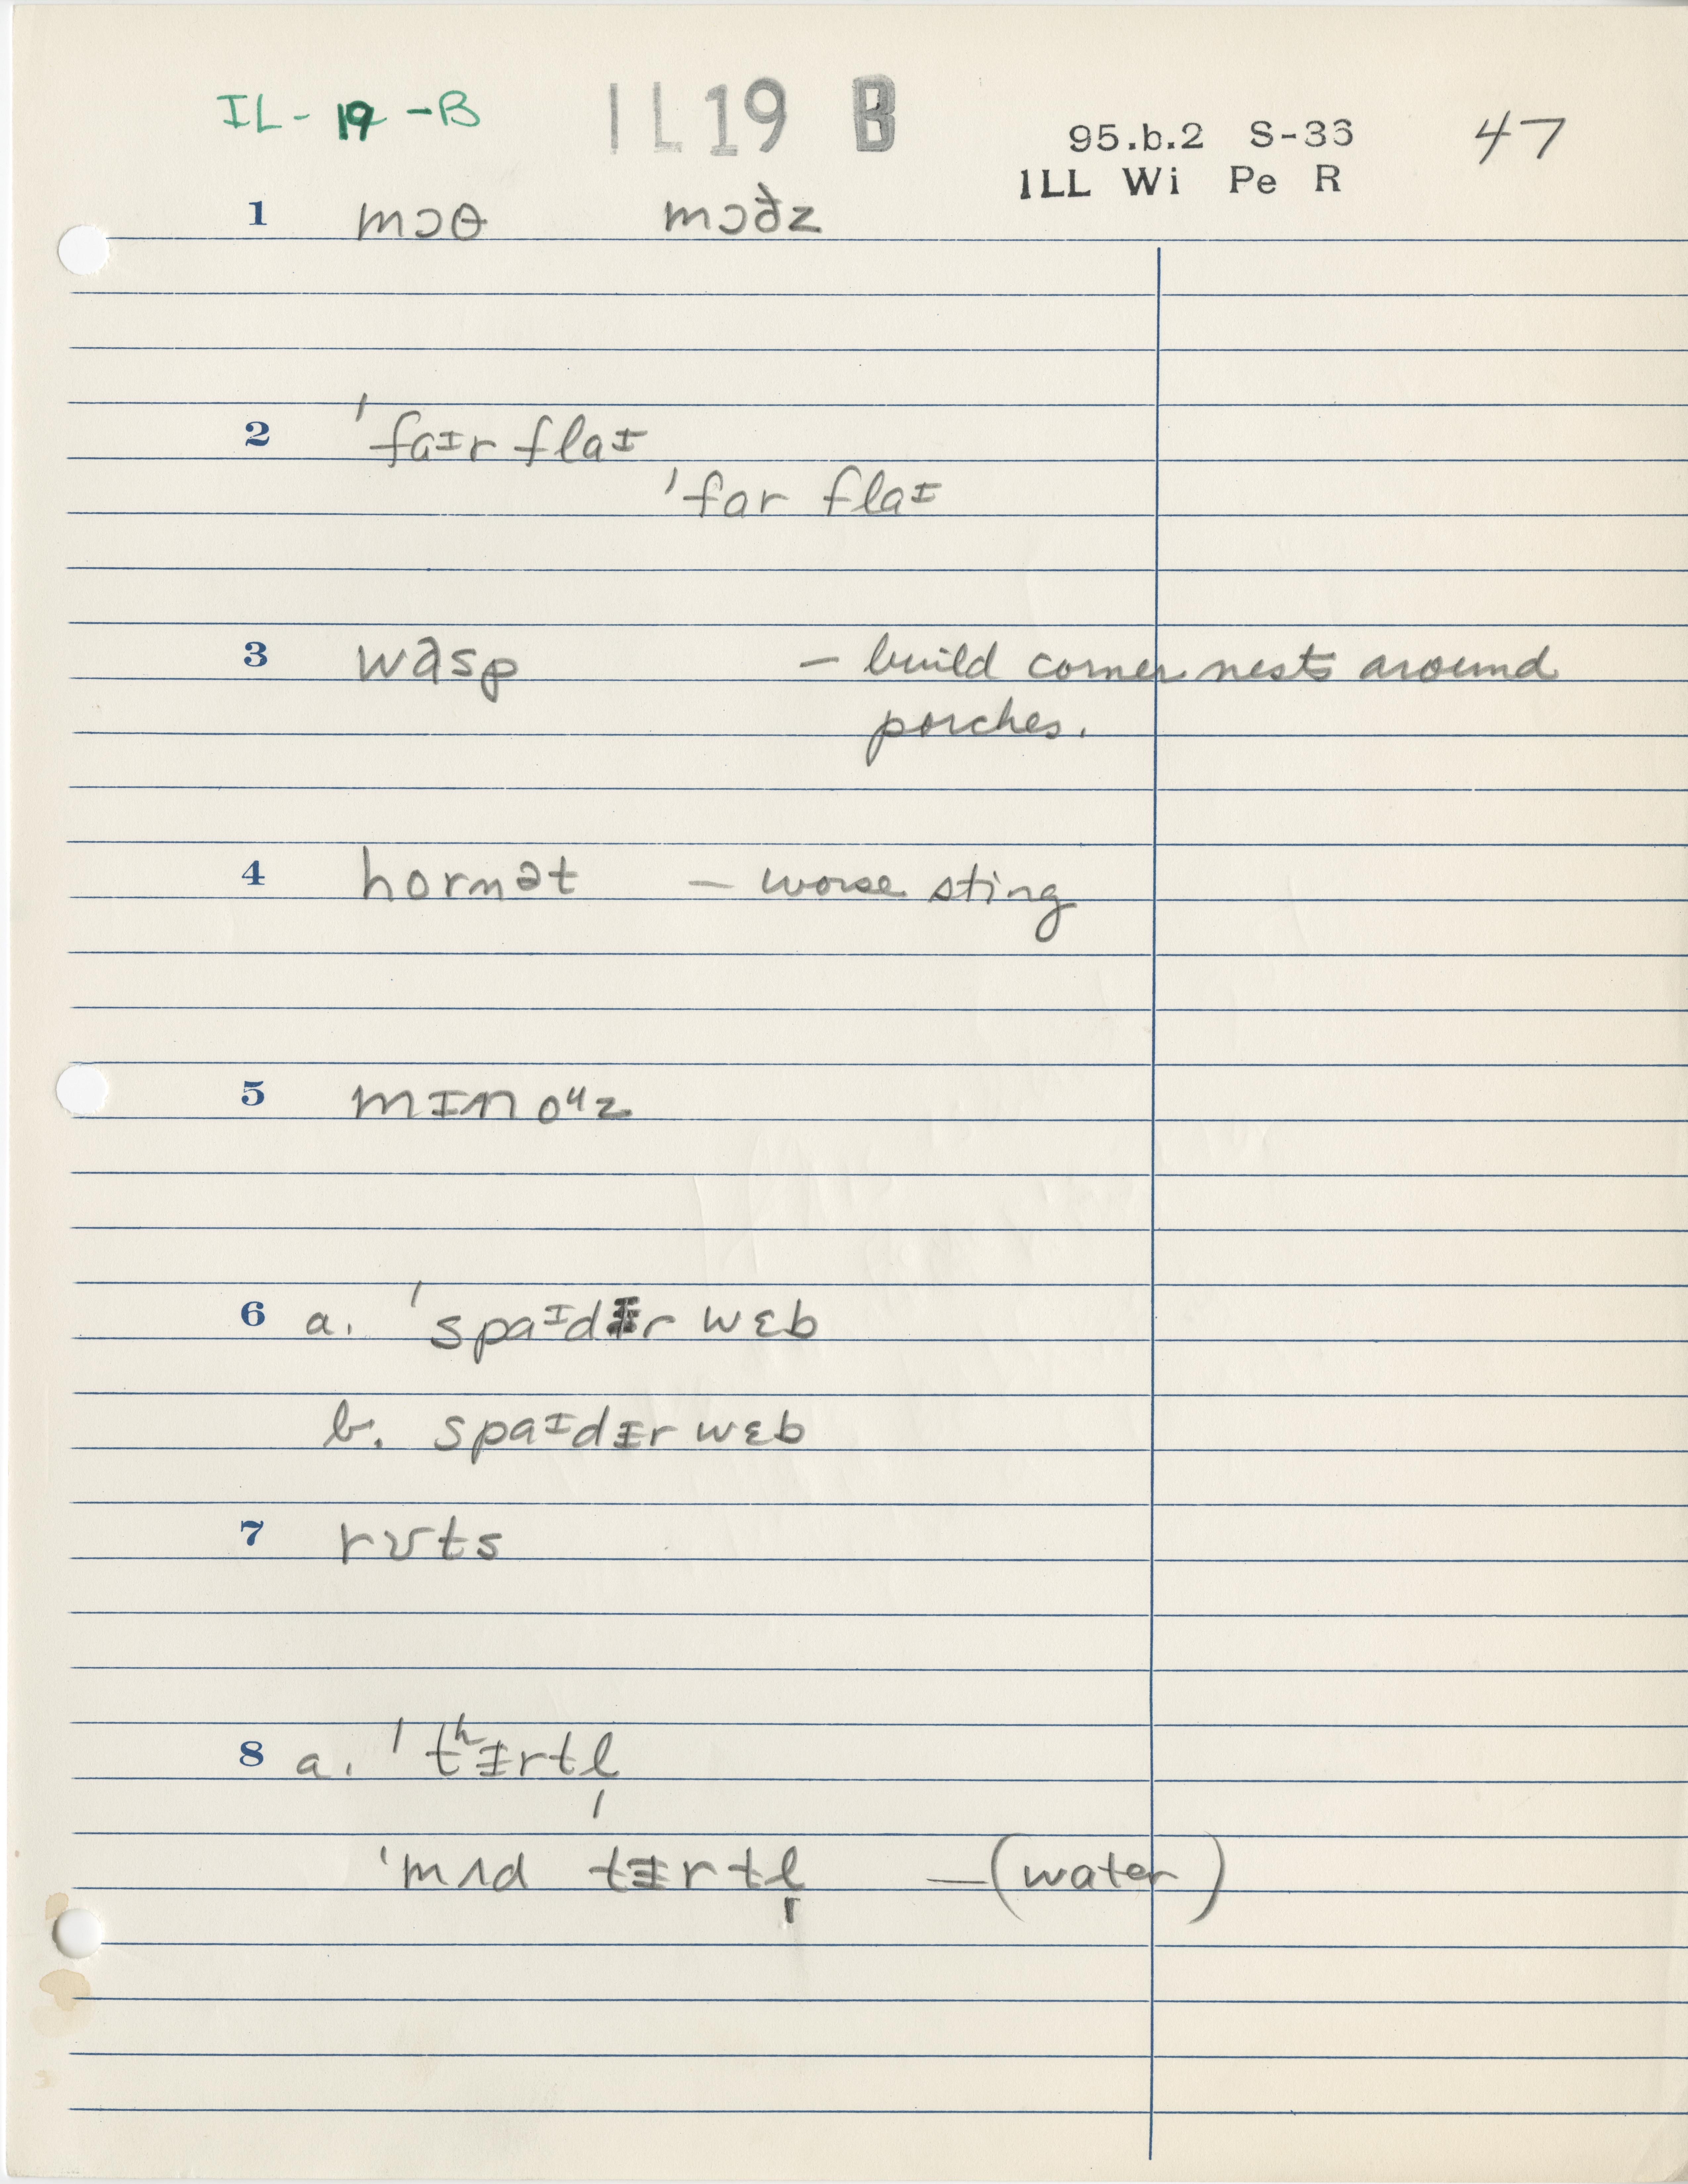 IL-19-B IL19 B 95.b.2 S-36 47
ILL Wi Pe R
1 mɔθ mɔðz
2 'faɪr flaɪ
'far flaɪ
3 wasp — build corner nests around
porches.
4 hornət — worse sting
5 mɪnoᵘz
6 a. 'spaᶦdᵻr wɛb
b. spaᶦdᵻr wɛb
7 rʊts
8 a. 'tʰᵻrtl̩
'mʌd tᵻrtl̩ — (water)